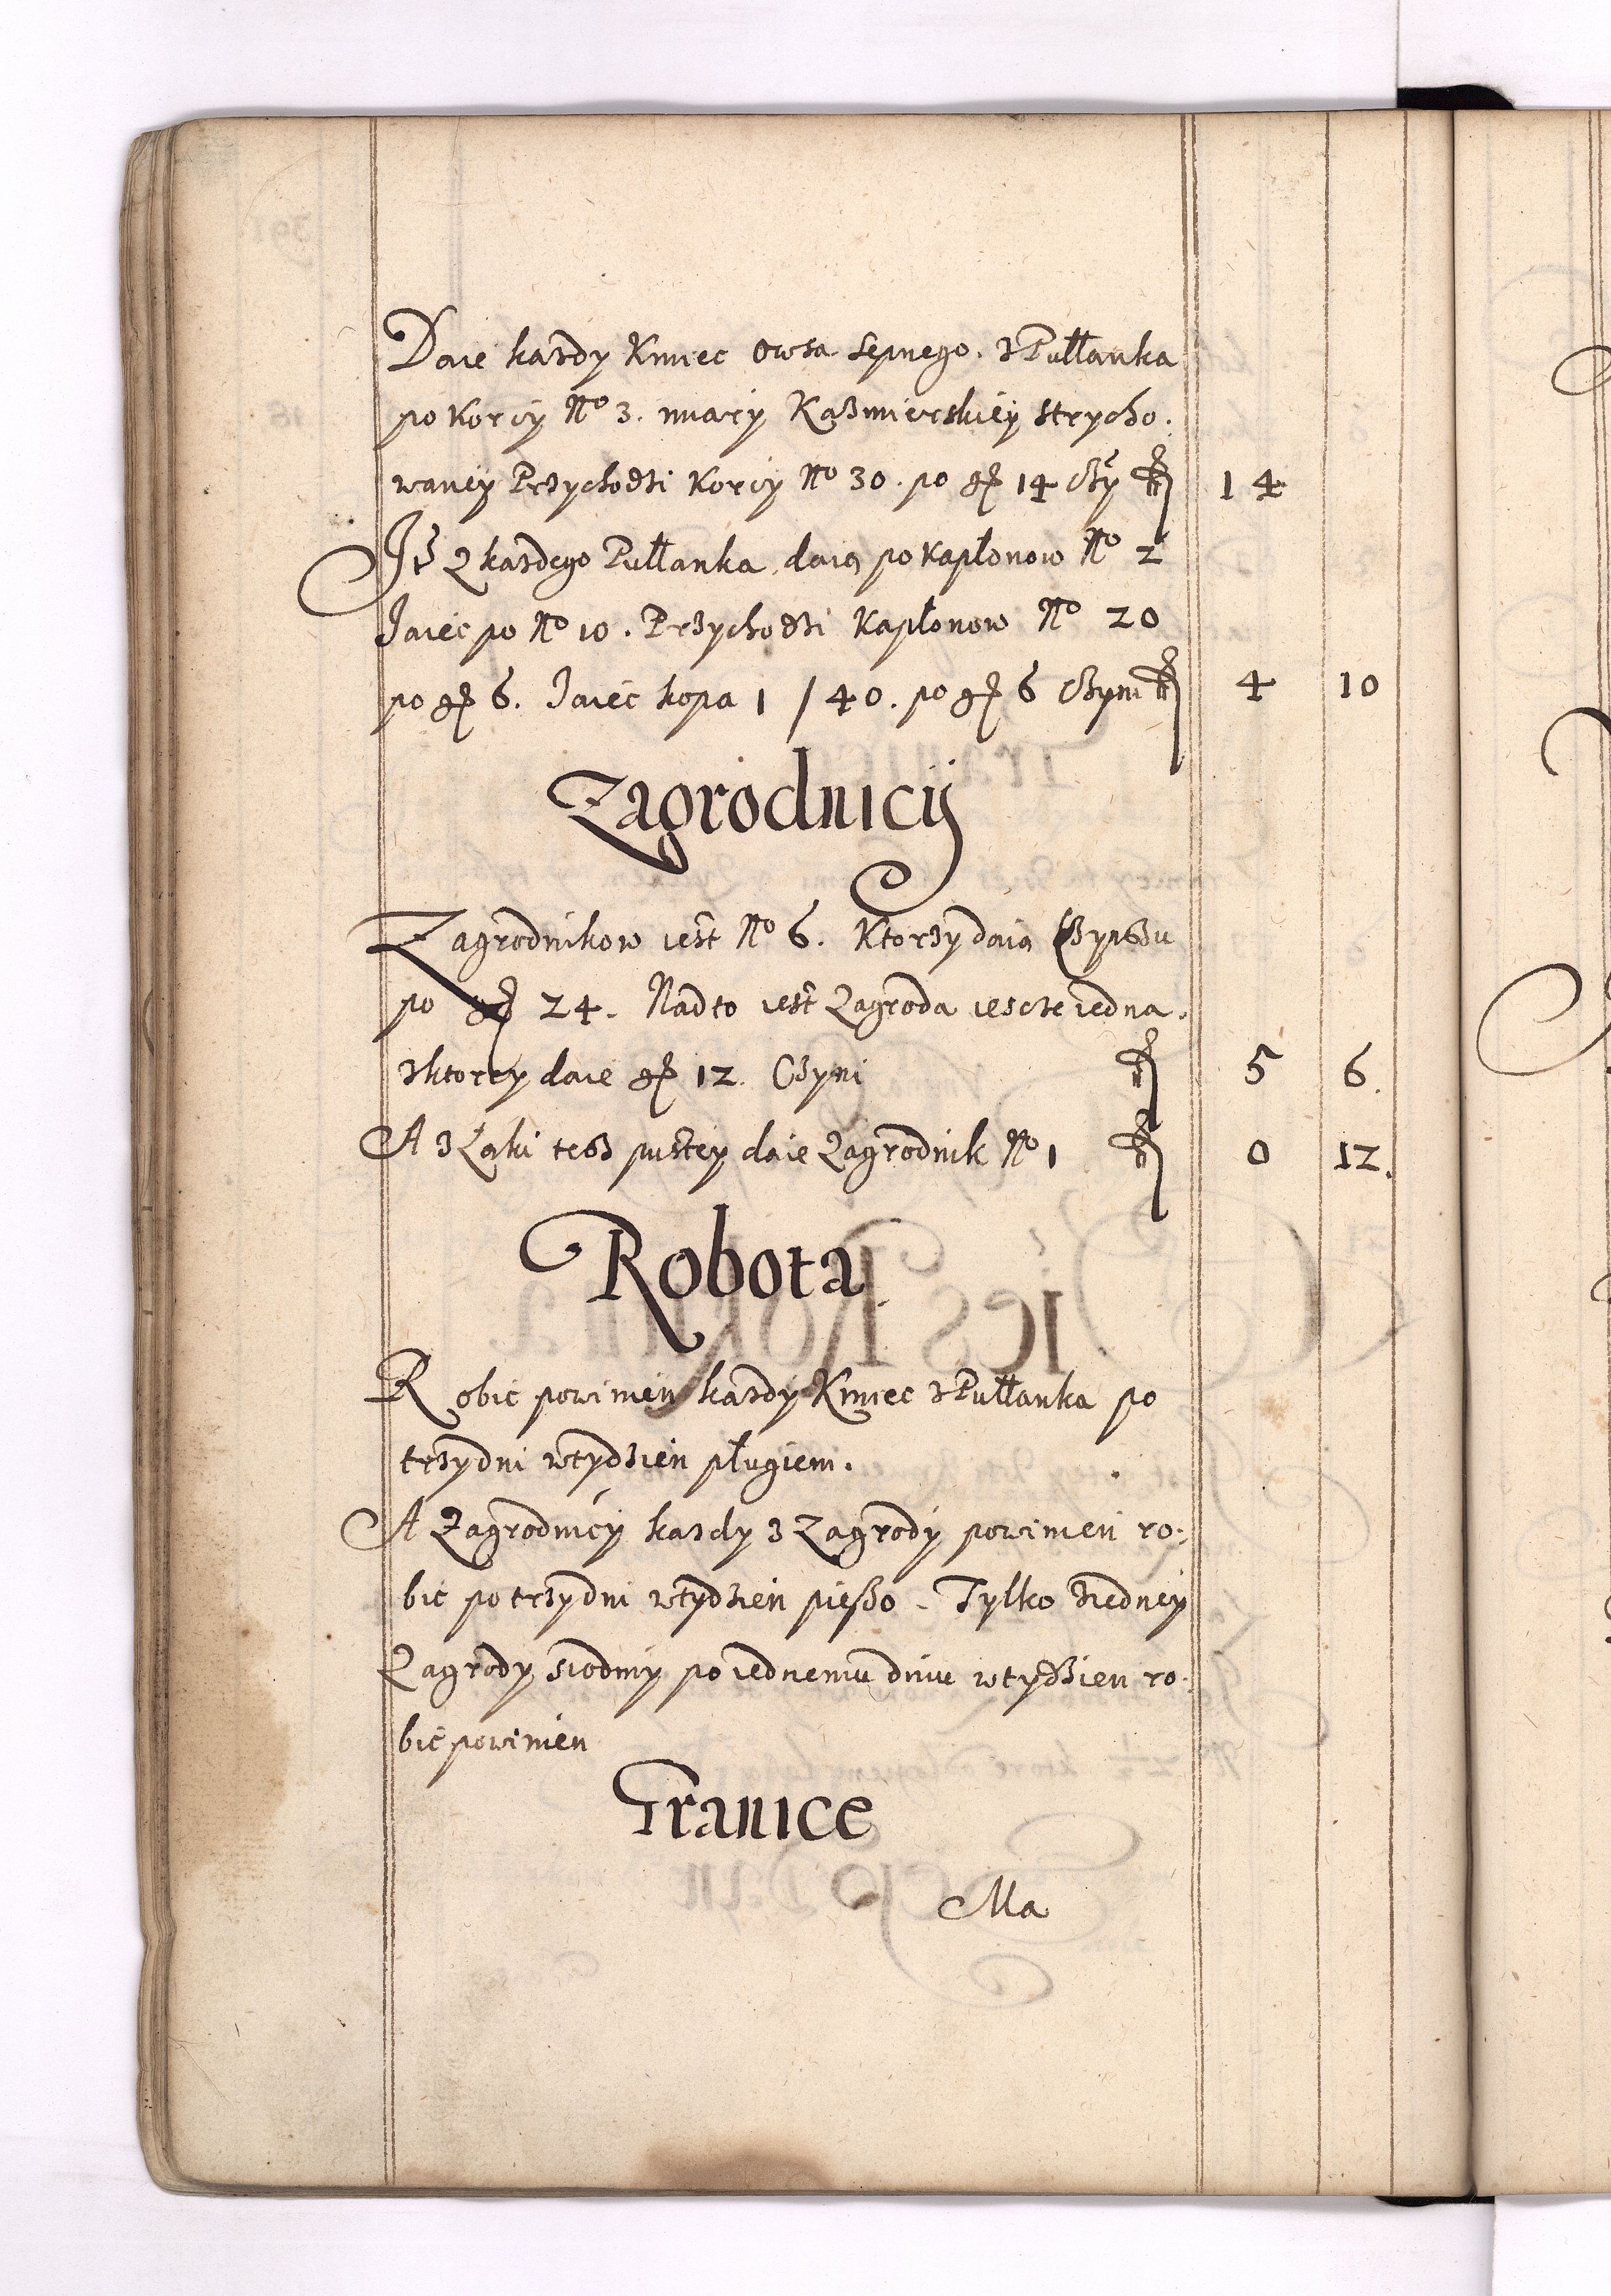 Daie kazdy Kmiec Owsa Sepnego. z Pułłanka
po Korcy No 3. miary Kazmierskiey strycho.
waney Przychodzi Korcy No 30. po gr 14 Czy fl 14
It z kazdego Pułłanka daią po Kapłonow No 2
Jaiec po No 10. Przychodzi Kapłonow No 20
po gr 6. Jaiec kopa 1 / 40. po gr 6 Czyni fl 4 10
Zagrodnicÿ
Zagrodnikow iest No 6. Ktorzy daią Czynszu
po gr 24. Nadto iest Zagroda iescze iedna.
z ktorey daie gr 12. Czyni fl 5 6.
A z Łąki tesz pustey daie Zagrodnik No 1 fl 0 12.
Robota
Robic powinien kazdy Kmiec z Pułłanka po
trzy dni w tydzien pługiem.
A Zagrodnicy kazdy z Zagrody powinien ro.
bic po trzy dni w tydzien pieszo. Tylko z iedney
Zagrody siodmy po iednemu dniu w tydzien ro.
bic powinien
Granice
Ma